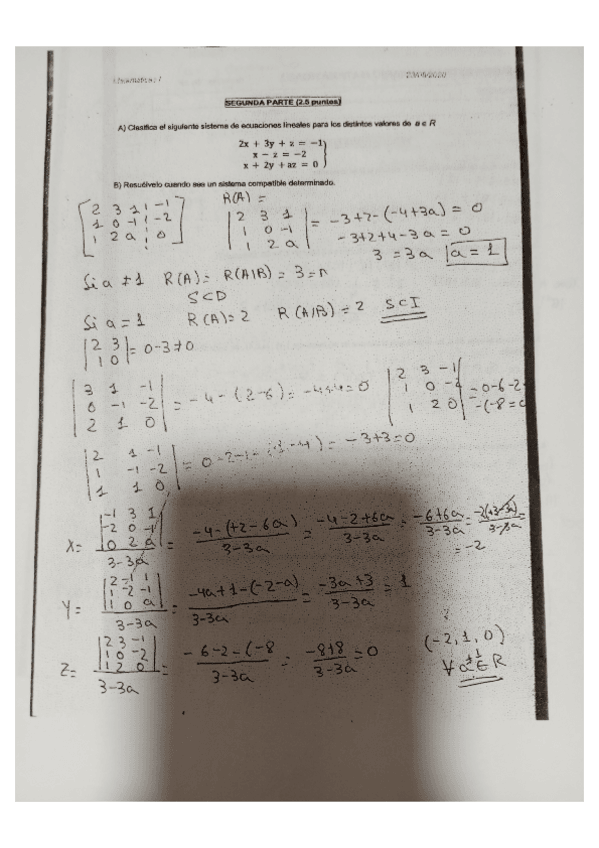 23/06/2020
SEGUNDA PARTE (2.5 puntos)
A) Clasifica el siguiente sistema de ecuaciones lineales para los distintos valores de a ∈ R
2x + 3y + z = −1
x − z = −2
x + 2y + az = 0
B) Resuélvelo cuando sea un sistema compatible determinado.
R(A) =
[2 3 1 | -1
1 0 -1 | -2
1 2 a | 0]
|2 3 1
1 0 -1
1 2 a| = -3+2-(-4+3a) = 0
-3+2+4-3a = 0
3 = 3a a = 1
Si a ≠ 1 R(A) = R(A|B) = 3 = n
SCD
Si a = 1 R(A) = 2 R(A|B) = 2 SCI
|2 3
1 0| = 0-3 ≠ 0
|3 1 -1
0 -1 -2
2 1 0| = -4-(2-6) = -4+4 = 0
|2 3 -1
1 0 -2
1 2 0| = 0-6-2-
-(-8 = 0
|2 1 -1
1 -1 -2
1 1 0| = -3+3 = 0
X = |-1 3 1
-2 0 -1
0 2 a| / 3-3a = -4-(+2-6a) / 3-3a = -4-2+6a / 3-3a = -6+6a / 3-3a =
= -2
Y = |2 -1 1
1 -2 -1
1 0 a| / 3-3a = -4a+1-(-2-a) / 3-3a = -3a+3 / 3-3a = 1
Z = |2 3 -1
1 0 -2
1 2 0| / 3-3a = -6-2-(-8 / 3-3a = -8+8 / 3-3a = 0
(-2, 1, 0)
∀ a≠1 ∈ R